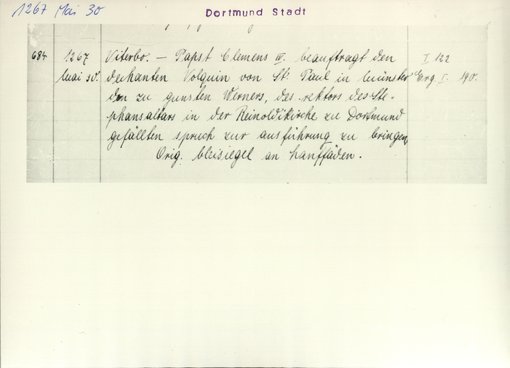 1267 Mai 30
Dortmund Stadt
684 1267 Viterbo. — Papst Clemens IV. beauftragt den I 122
Mai 30. dechanten Volquin von St. Paul in Münster Erg. I. 140.
den zu gunsten Werners, des rektors des Ste-
phansaltars in der Reinoldikirche zu Dortmund
gefällten spruch zur ausführung zu bringen.
Orig. bleisiegel an hanffäden.